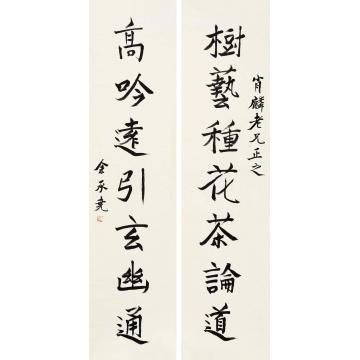 肖麟老兄正之
樹藝種花茶論道
髙吟遠引玄幽通
余承堯